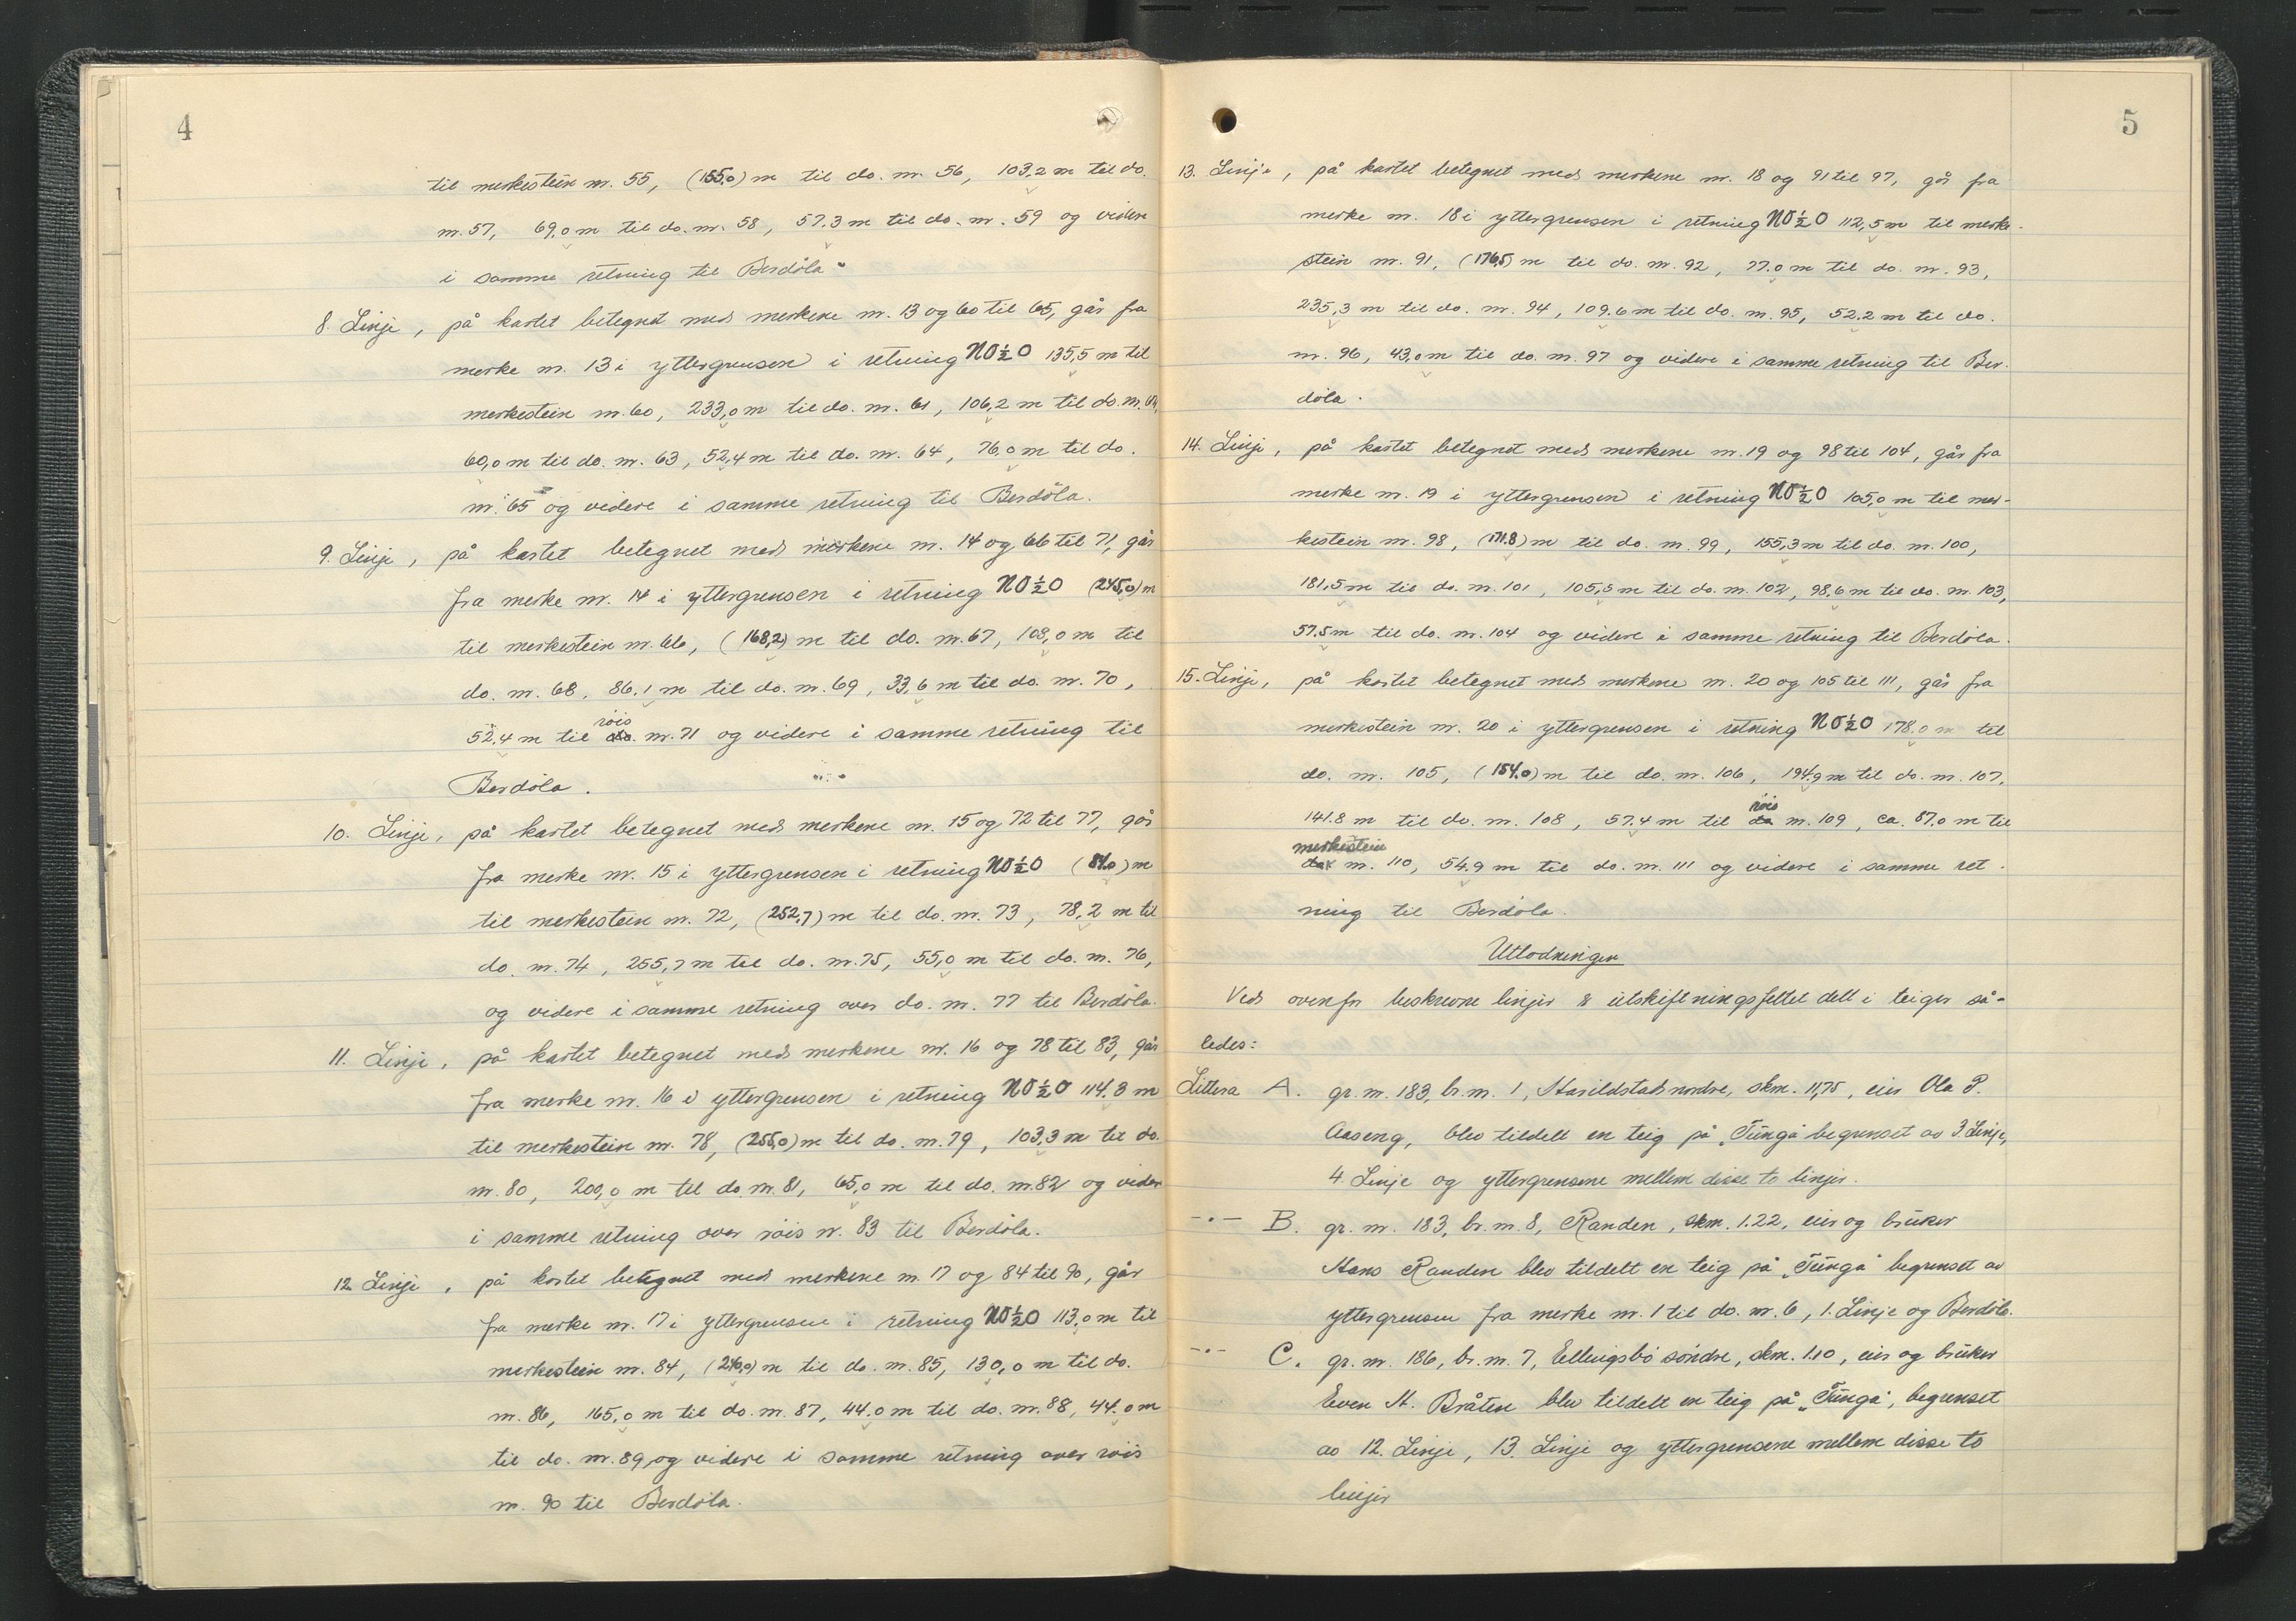 4
til merkestein nr. 55, (155,0) m til do. nr. 56, 103,2 m til do.
nr. 57, 69,0 m til do. nr. 58, 57.3 m til do. nr. 59 og videre
i samme retning til Berdöla.
8. Linje, på kartet betegnet med merkene nr. 13 og 60 til 65, går fra
merke nr. 13 i yttergrensen i retning NO½O 135,5 m til
merkestein nr. 60, 233,0 m til do. nr. 61, 106,2 m til do. nr. 62,
60,0 m til do. nr. 63, 52,4 m til do. nr. 64, 76,0 m til do.
nr. 65 og videre i samme retning til Berdöla.
9. Linje, på kartet betegnet med merkene nr. 14 og 66 til 71, går
fra merke nr. 14 i yttergrensen i retning NO½O (245,0) m
til merkestein nr. 66, (168,2) m til do. nr. 67, 108,0 m til
do. nr. 68, 86.1 m til do. nr. 69, 33,6 m til do. nr. 70,
röis
52,4 m til do. nr. 71 og videre i samme retning til
Berdöla.
10. Linje, på kartet betegnet med merkene nr. 15 og 72 til 77, går
fra merke nr. 15 i yttergrensen i retning NO½O (81.0) m
til merkestein nr. 72, (252,7) m til do. nr. 73, 78,2 m til
do. nr. 74, 255,7 m til do. nr. 75, 55,0 m til do. nr. 76,
og videre i samme retning over do. nr. 77 til Berdöla.
11. Linje, på kartet betegnet med merkene nr. 16 og 78 til 83, går
fra merke nr. 16 i yttergrensen i retning NO½O 114.3 m
til merkestein nr. 78, (255,0) m til do. nr. 79, 103,3 m til do.
nr. 80, 200,0 m til do nr. 81, 65,0 m til do. nr. 82 og videre
i samme retning over röis nr. 83 til Berdöla.
12. Linje, på kartet betegnet med merkene nr. 17 og 84 til 90, går
fra merke nr. 17 i yttergrensen i retning NO½O 113,0 m til
merkestein nr. 84, (240,0) m til do. nr. 85, 130,0 m til do.
nr. 86, 165,0 m til do. nr. 87, 44.0 m til do. nr. 88, 44.0 m
til do. nr. 89, og videre i samme retning over röis
nr. 90 til Berdöla.
5
13. Linje, på kartet betegnet med merkene nr. 18 og 91 til 97, går fra
merke nr. 18 i yttergrensen i retning NO½O 112,5 m til merke-
stein nr. 91, (176,5) m til do. nr. 92, 77.0 m til do. nr. 93,
235,3 m til do. nr. 94, 109.6 m til do. nr. 95, 52.2 m til do.
nr. 96, 43,0 m til do. nr. 97 og videre i samme retning til Ber-
döla.
14. Linje, på kartet betegnet med merkene nr. 19 og 98 til 104, går fra
merke nr. 19 i yttergrensen i retning NO½O 105,0 m til mer-
kestein nr. 98, (171.8) m til do. nr. 99, 155,3 m til do. nr. 100,
181,5 m til do. nr. 101, 105,5 m til do. nr. 102, 98,6 m til do. nr. 103,
57.5 m til do. nr. 104 og videre i samme retning til Berdöla.
15. Linje, på kartet betegnet med merkene nr. 20 og 105 til 111, går fra
merkestein nr. 20 i yttergrensen i retning NO½O 178.0 m til
do. nr. 105, (154.0) m til do. nr. 106, 194,9 m til do. nr. 107,
röis
141.8 m til do. nr. 108, 57.4 m til do nr. 109, ca. 87.0 m til
merkestein
do. nr. 110, 54.9 m til do. nr. 111 og videre i samme ret-
ning til Berdöla.
Utlodningen
Ved ovenfor beskrevne linjer er utskiftningsfeltet delt i teiger så-
ledes:
Littera A. gr. nr. 183, br. nr. 1, Harildstad nordre, skm. 11,75, eier Ola P.
Aaseng, blev tildelt en teig på "Tunga" begrenset av 3. Linje,
4. Linje og yttergrensene mellem disse to linjer.
-"- B. gr. nr. 183, br. nr. 8, Randen, skm. 1.22, eier og bruker
Hans Randen blev tildelt en teig på "Tunga" begrenset av
yttergrensen fra merke nr. 1 til do. nr. 6, 1. Linje og Berdöla.
-"- C. gr. nr. 186, br. nr. 7, Ellingsbö söndre, skm. 1.10, eier og bruker
Even H. Bråten blev tildelt en teig på "Tunga", begrenset
av 12. Linje, 13. Linje og yttergrensene mellem disse to
linjer